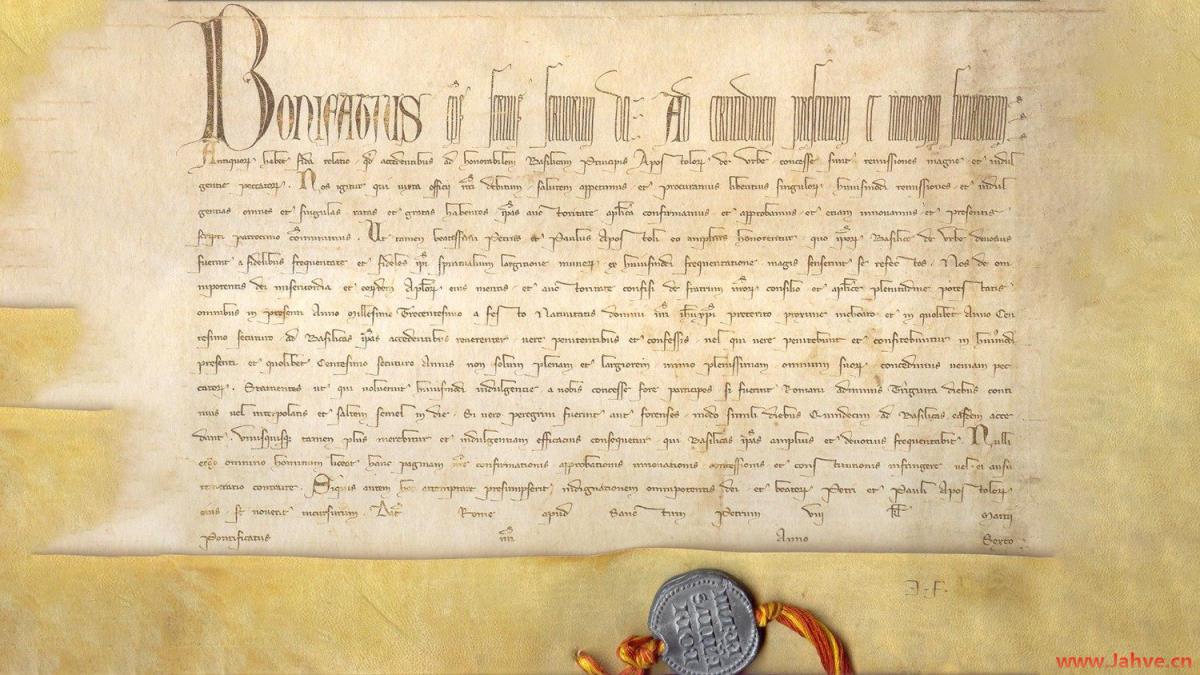 Bonifatius ep̄s servus servorum dei Ad certitudinem presentium et memoriam futurorum
Antiquorꝝ habet fida relatio qđ accedentibus ad honorabilem Basilicam Principis Apostolorꝝ de Urbe concesse sunt remissiones magne et indul
gentie peccatorꝝ. Nos igitur qui iuxta officij nr̄i debitum salutem appetimus et procuramus libentius singulorꝝ huiusmodi remissiones et indul
gentias omnes et singulas ratas et gratas habentes ip̄as auctoritate ap̄lica confirmamus et approbamus et etiam innovamus et presentis
scripti patrocinio cōmunimus. Ut tamen beatissimi Petrus et Paulus Apostoli eo amplius honorentur quo ip̄orꝝ Basilice de Urbe devotius
fuerint a fidelibus frequentate et fideles ip̄i spiritualium largitione munerꝝ ex huiusmodi frequentatione magis senserint se refectos. Nos de om
nipotentis dei misericordia et eorꝺem Ap̄lorꝝ eius meritis et auctoritate confisi de fratrum nr̄orꝝ consilio et ap̄lice plenitudine potestatis
omnibus in presenti Anno Millesimo Trecentesimo a festo Nativitatis domini nr̄i ih̄uxp̄i preterito proxime inchoato et in quolibet Anno Cen
tesimo secuturo ad Basilicas ip̄as accedentibus reverenter vere penitentibus et confessis vel qui vere penitebunt et confitebuntur in huiusmōi
presenti et quolibet Centesimo secuturo Annis non solum plenam et largiorem immo plenissimam omnium suorꝝ concedimus veniam pec
catorꝝ. Statuentes ut qui voluerint huiusmodi indulgentie a nobis concesse fore participes si fuerint Romani adminus Triginta diebus conti
nuis vel interpolatis et saltem semel in die. Si vero peregrini fuerint aut forenses modo simili diebus Quindecim ad Basilicas easdem acce
dant. Unusquisqꝫ tamen plus merebitur et indulgentiam efficacius consequetur qui Basilicas ip̄as amplius et devotius frequentabit. Nulli
ergo omnino hominum liceat hanc paginam nr̄e confirmationis approbationis innovationis concessionis et constitutionis infringere vel ei ausu
temerario contraire. Siquis autem hoc attemptare presumpserit indignationem omnipotentis dei et beatorꝝ Petri et Pauli Apostolorꝝ
eius se noverit incursurum. Dat̄ Rome apud Sanctum Petrum viij kl̄ Martij
Pontificatus nr̄i Anno Sexto
www.Jahve.cn